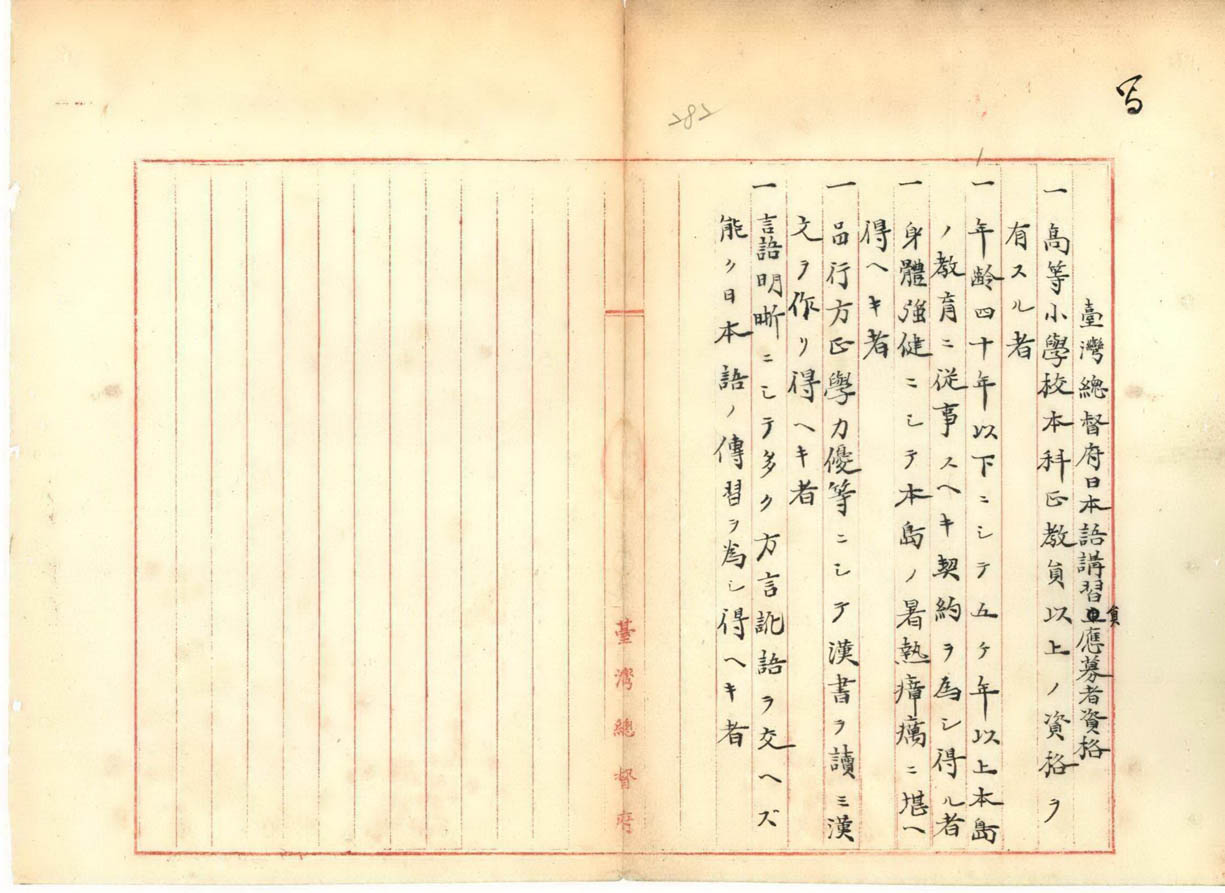 写
282
臺灣總督府日本語講習員應募者資格
一高等小學校本科正教員以上ノ資格ヲ
有スル者
一年齢四十年以下ニシテ五ケ年以上本島
ノ教育ニ従事スヘキ契約ヲ為シ得ル者
一身體強健ニシテ本島ノ暑熱瘴癘ニ堪ヘ
得ヘキ者
一品行方正學力優等ニシテ漢書ヲ讀ミ漢
文ヲ作リ得ヘキ者
一言語明晰ニシテ多ク方言訛語ヲ交ヘズ
能ク日本語ノ傳習ヲ為シ得ヘキ者
臺灣總督府